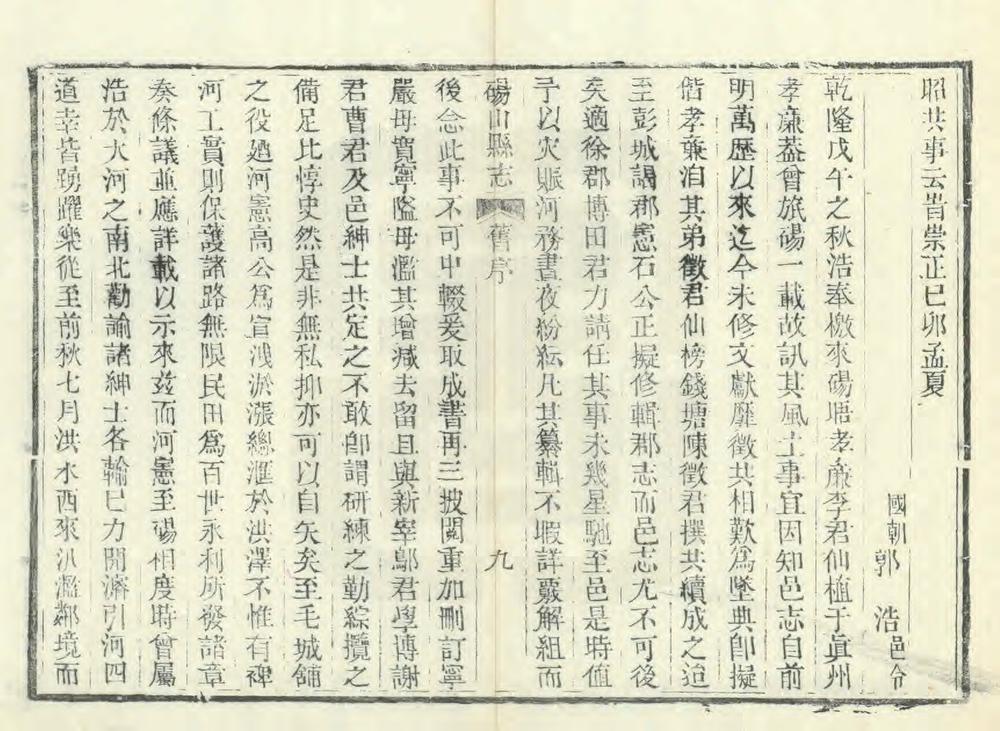 昭共事云旹崇正己卯孟夏
國朝郭　浩邑令
乾隆戊午之秋浩奉檄來碭晤孝廉李君仙植于眞州
孝廉葢曾旅碭一載故訊其風土事宜因知邑志自前
明萬歷以來迄今未修文獻靡徵共相歎爲墜典卽擬
偕孝亷洎其弟徵君仙榜錢塘陳徵君撰共續成之迨
至彭城謁郡憲石公正擬修輯郡志而邑志尤不可後
矣適徐郡博田君力請任其事未幾星馳至邑是時值
予以灾賑河務晝夜紛紜凡其纂輯不暇詳覈解組而
碭山縣志　舊序　九
後念此事不可中輟爰取成書再三披閱重加刪訂寧
嚴母寛寧隘母濫其增減去留且與新宰鄔君學博謝
君曹君及邑紳士共定之不敢卽謂硏練之勤綜攬之
備足比惇史然是非無私抑亦可以自矢矣至毛城舖
之役廼河憲高公爲宣洩淤漲總滙於洪澤不惟有裨
河工實則保護諸路無限民田爲百世永利所發諸章
奏條議並應詳載以示來茲而河憲至碭相度時曾屬
浩於大河之南北勸諭諸紳士各輸己力開濬引河四
道幸皆踴躍樂從至前秋七月洪水西來汎濫鄰境而